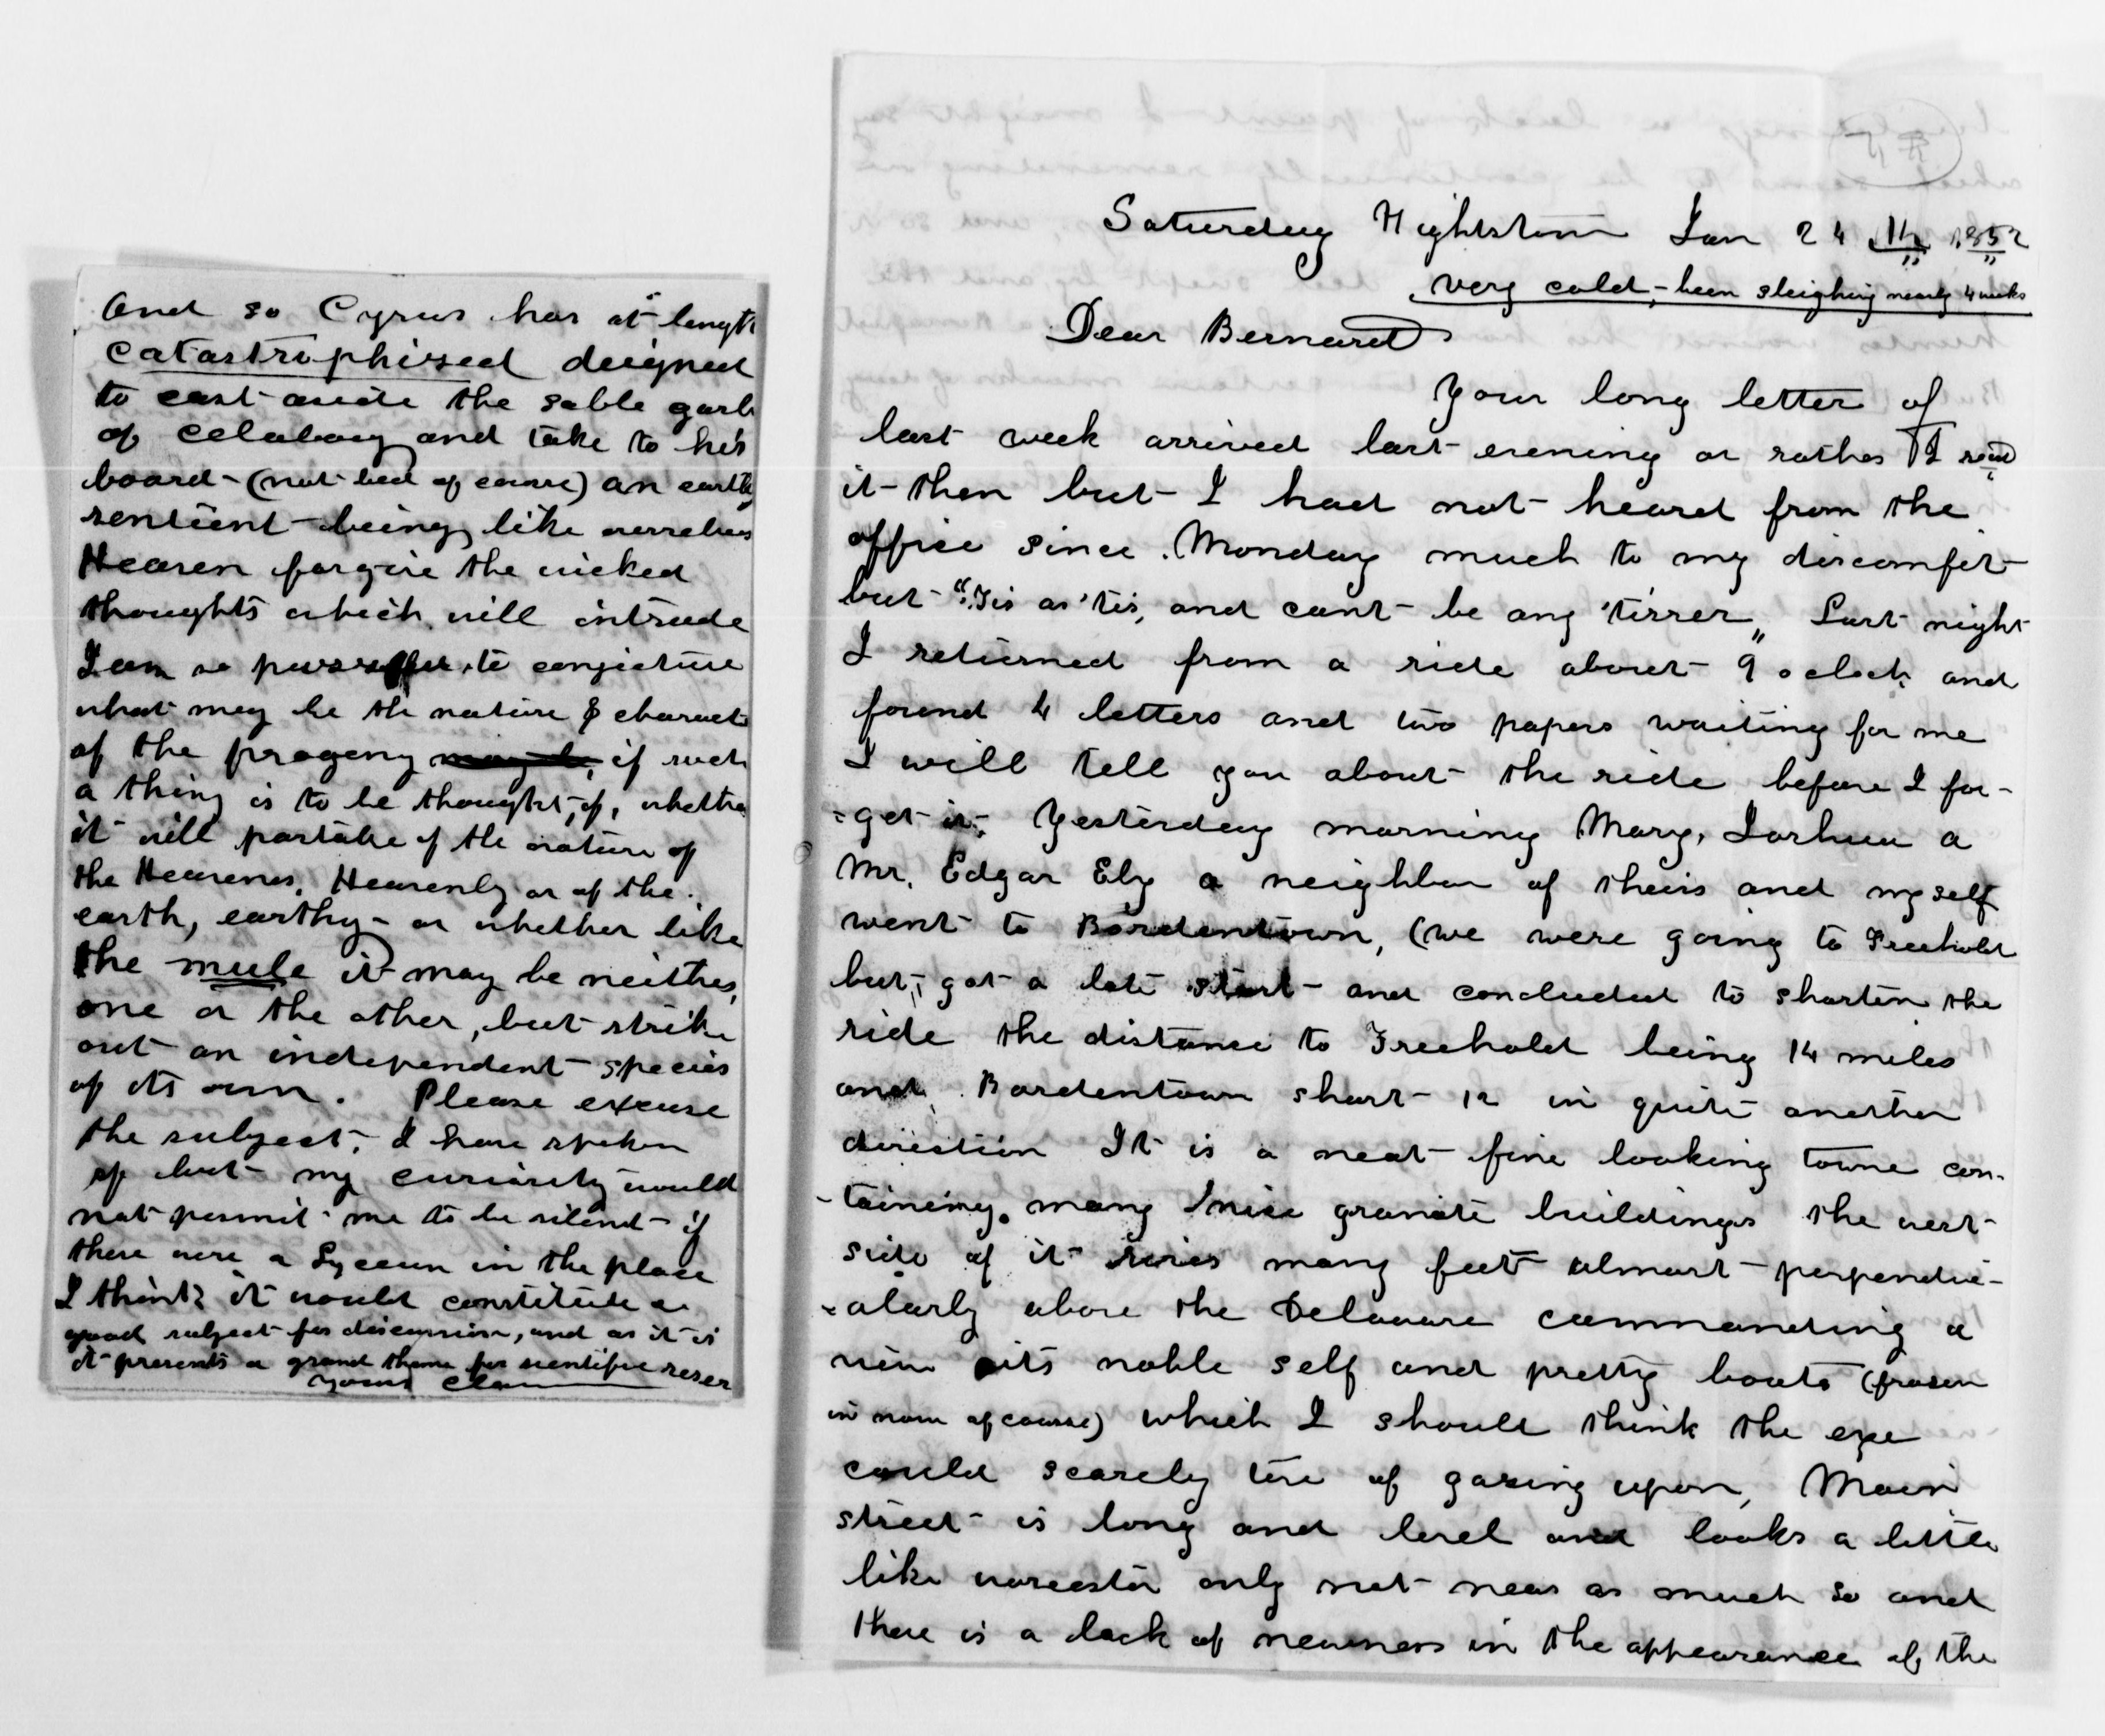 And so Cyrus has at length
catastrophised deigned
to cast aside the sable garb
of celabacy and take to his
board - (not bed of course) an earthy
sentient being like ourselves
Heaven forgive the wicked
thoughts which will intrude
I am so to conjecture
what may be the nature & charact
of the progeny may be, if such
a thing is to be thought, of, whether
it will partake of the nature of
the Heavens, Heavenly or of the
earth, earthy - or whether like
the mule it may be neither,
one or the other, but strike
out an independent species
of its own. Please excuse
the subject, I have spoken
of but my curiosity would
not permit me to be silent - if
there were a Lyceum in the place
I think it would constitute a
good subject for discussion, and as it is
it presents a grand theme for scientific reser
yours Clara
Saturday Hightstown Jan 24 th 1852
very cold, - been sleighing nearly 4 weeks
Dear Bernard
Your long letter of
last week arrived last evening or rather I read
it then but I had not heard from the
office since Monday much to my discomfit
but "'Tis as 'tis, and cant be any 'tisser" Last night
I returned from a ride about 9 o clock and
found 4 letters and two papers waiting for me
I will tell you about the ride before I for-
-get it, Yesterday morning Mary, Joshua a
Mr. Edgar Ely a neighbor of theirs and myself
went to Bordentown, (we were going to Freehold
but, got a late start and concluded to shorten the
ride the distance to Freehold being 14 miles
and Bordentown short 12 in quite another
direction It is a neat fine looking towne con-
-taining many nice granite buildings the west
side of it rises many feet almost perpendic-
-alarly above the Delaware commanding a
view its noble self and pretty boats (frozen
in now of course) which I should think the eye
could scarcely tire of gazing upon, Main
street is long and level and looks a little
like worcester only not near as much so and
there is a lack of newness in the appearance of the